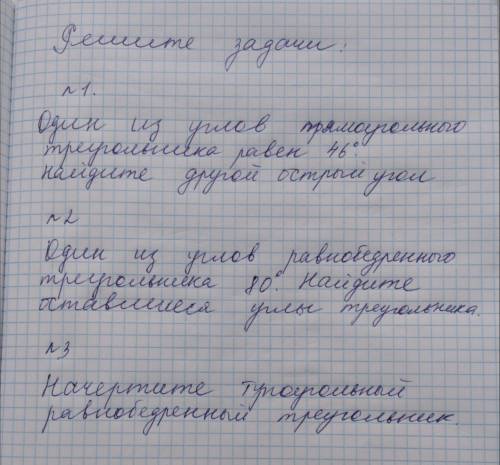 Решите задачи:
№1.
Один из углов прямоугольного
треугольника равен 46°.
найдите другой острый угол
№2
Один из углов равнобедренного
треугольника 80°. Найдите
оставшиеся углы треугольника.
№3
Начертите тупоугольный
равнобедренный треугольник.